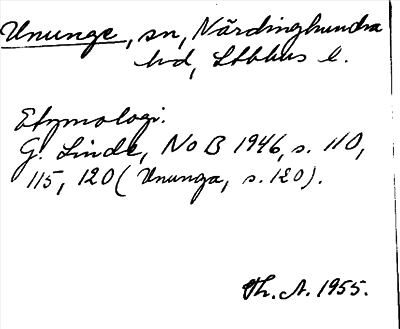 Ununge, sn, Närdinghundra
hd, Sthlms l.
Etymologi.
G. Linde, NoB 1946, s. 110,
115, 120 (Ununga, s. 120).
Th. A. 1955.